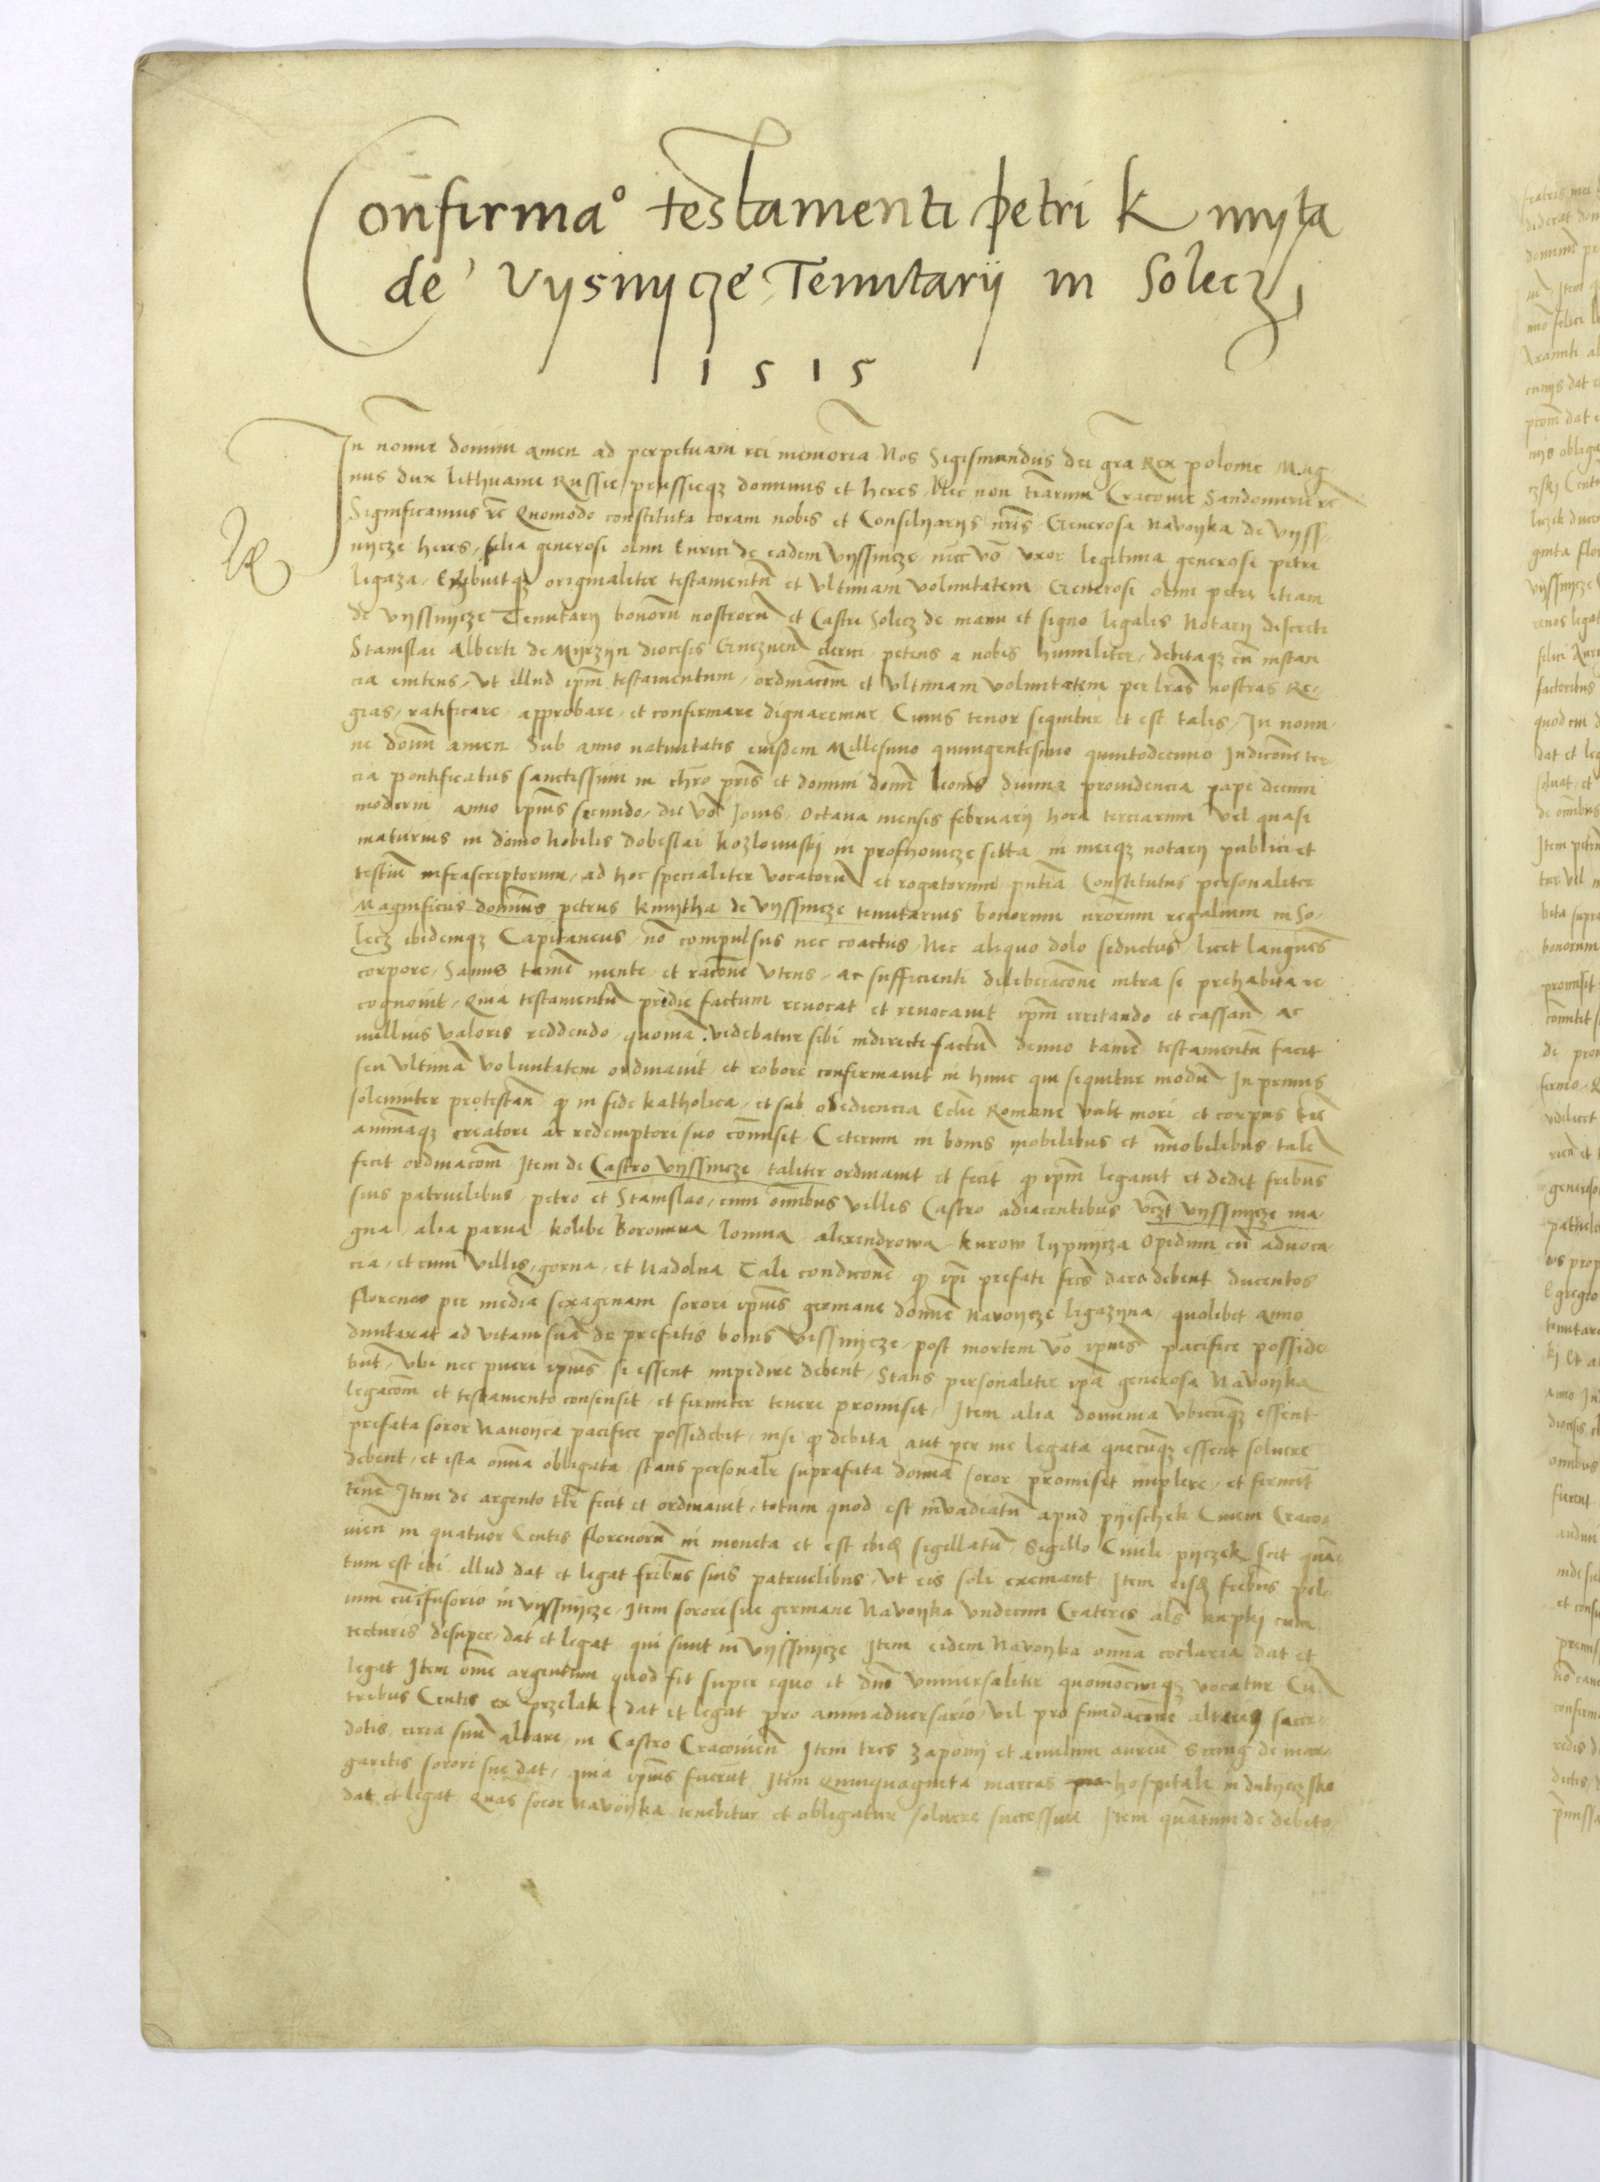 Confirmaº testamenti petri Kmyta
de Vysnycze Tenutarij in Solecz
1515
In nomine domini amen ad perpetuam rei memoria Nos Sigismundus dei gra Rex polonie Mag
nus dux lithuanie Russie prussieqz dominus et heres Nec non trarum Cracouie Sandomirie rc
Significamus rc Quomodo constituta coram nobis et Consilyarys nris Generosa Navoyka de vyss
nycze heres filia generosi olim Enrici de eadem vyssnicze nec vo vxor legitima generosi petri
ligaza Exhibuitqz originaliter testamentu et vltimam voluntatem Generosi olim petri etiam
de vyssnycze Tenutarij bonoru nostroru et Castri Solecz de manu et signo legalis Notarij discreti
Stanislai Alberti de Myrzyn diocesis Gneznen clerici petens a nobis humiliter debitaqz cu instan
cia enitens vt illud ipm testamentum ordinacom et vltimam voluntatem per lras nostras Re
gias ratificare approbare et confirmare dignaremur Cuius tenor sequitur et est talis In nomi
ne domi amen Sub anno natiuitatis eiusdem Millesimo quingentesimo quintodecimo Indicone ter
cia pontificatus sanctissimi in chro pris et domini domi leonis diuina prouidencia pape decimi
moderni anno ipius secundo die vo Jouis Octaua mensis februarij hora terciarum vel quasi
maturius in domo nobilis dobeslai kozlowskij in prossouicze sitta in meiqz notarij publici et
testium infrascriptorum ad hoc specialiter vocatoru et rogatorum pntia Constitutus personaliter
Magnificus dominus petrus kmytha de vyssnicze tenutarius bonorum nrorum regalium in So
lecz ibidemqz Capitaneus no compulsus nec coactus Nec aliquo dolo seductus licet languens
corpore Sanus tame mente et racone vtens ac sufficienti deliberacone intra se prehabita re
cognouit Quia testamentu pridie factum reuocat et reuocauit ipm irritando et cassan ac
nullius valoris reddendo quonia videbatur sibi indirecte factu denuo tame testamentu facit
seu vltima voluntatem ordinauit et robore confirmauit in hunc qui sequitur modu In primis
solenniter protestan qp in fide katholica et sub obediencia Eclie Romane vult mori et corpus tre
animaqz creatori ac redemptori suo comisit Ceterum in bonis mobilibus et imobilibus tale
fecit ordinacom Item de Castro vyssnicze taliter ordinauit et fecit qp ipm legauit et dedit fribus
suis patruelibus petro et Stanislao cum omibus villis Castro adiacentibus vczt vyssnycze ma
gna alia parua kolibe Borowna lomna alexendrowa kurow lypnycza Opidum cu aduoca
cia et cum villis gorna et Nadolna Tali condicone qp ipi prefati fres dare debent ducentos
florenos per media sexagenam sorori ipius germane domne Navoycze ligazyna quolibet anno
duntaxat ad vitam sua de prefatis bonis vissnycze post mortem vo ipius pacifice posside
but vbi nec pueri ipius si essent impedire debent Stans personaliter ipa generosa Navoyka
legacom et testamento consensit et firmiter tenere promisit Item alia domina vbicuqz essent
prefata soror Navoyca pacifice possidebit nisi qp debita aut per me legata quecuqz essent soluere
debent et ista omia obligata stans personalr suprafata domia soror promisit implere et firmit
tene Item de argento tlr fecit et ordinauit totum quod est inuadiatu apud pyeschek Ciuem Craco
vien in quatuor Centis florenoru in moneta et est ibid sigillatu Sigillo Ciuili pyczek scit quan
tum est ibi illud dat et legat fribus suis patruelibus vt eis soli exemant Item eisd fribus pel
uim cu ifusorio in vyssnycze Item sorori sue germane Navoyka vndecim Crateres als kupky cum
tecturis desuper dat et legat qui sunt in vyssnycze Item eidem Navoyka omia coclaria dat et
legat Item ome argentum quod fit super equo et dno vniuersaliter quomocuqz vocatur Cu
tribus Centis ex przelak dat et legat pro anniuersario vel pro fundacone alterius sacer
dotis circa suu altare in Castro Cracouien Item tres zapony et anulum aureu de mar
garitis sorori sue dat quia ipius fuerut Item Quinquaginta marcas hospitali in dubyeczsko
dat et legat Quas soror Navoyka tenebitur et obligatur soluere successiue Item quantum de debito